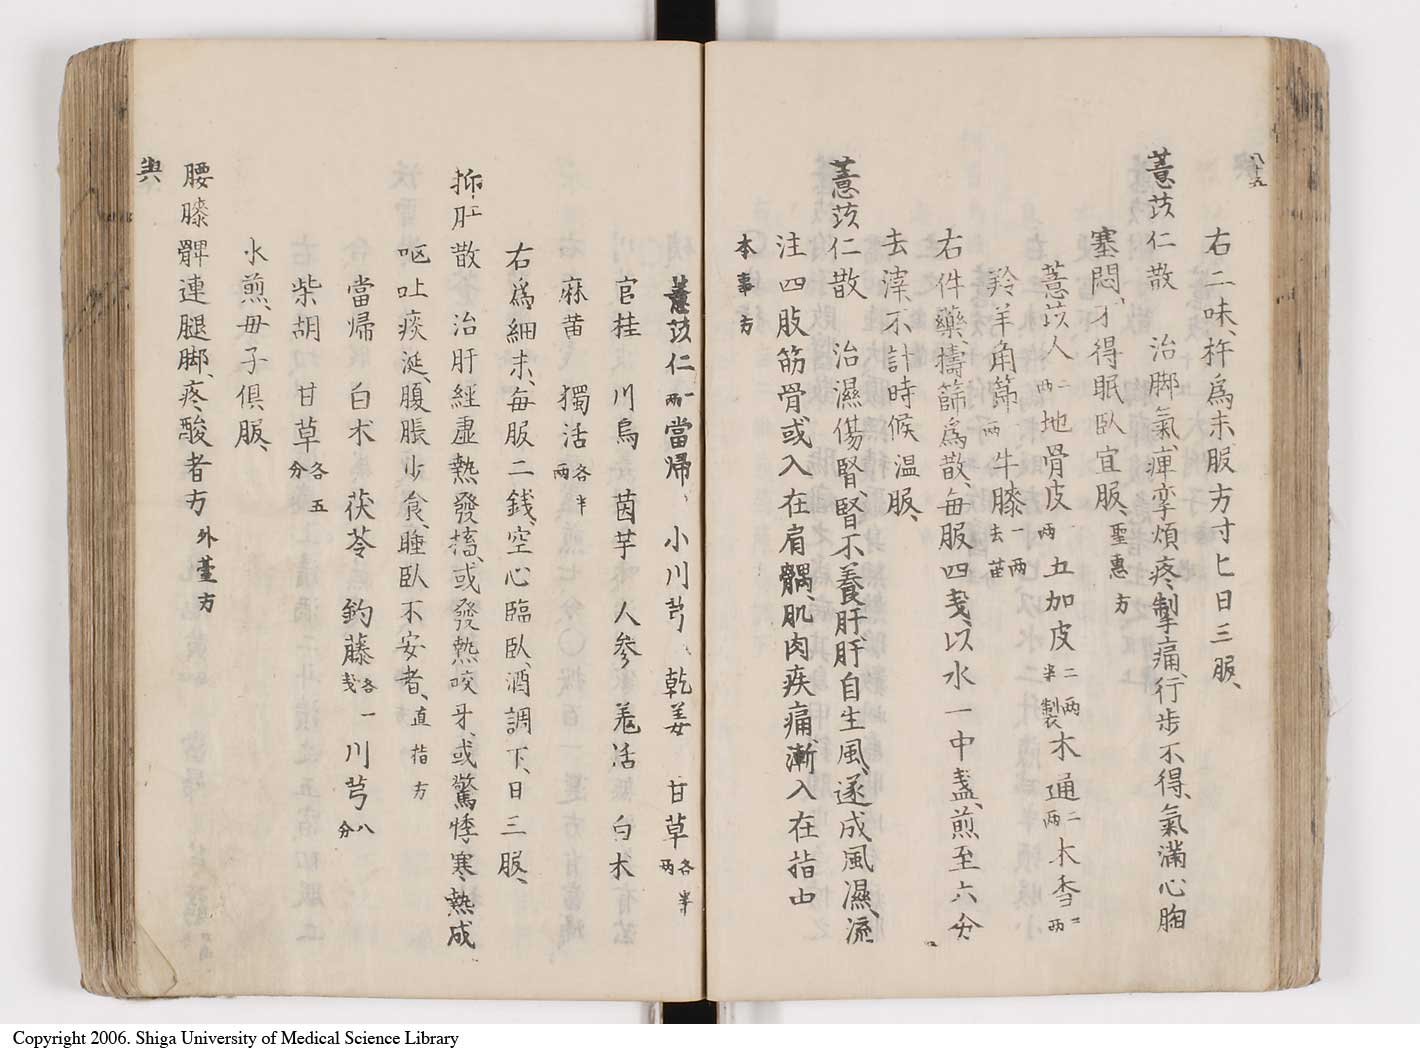 八十五
右二味、杵爲末、服方寸匕日三服、
薏苡仁散　治脚氣痺攣煩疼、掣痛、行步不得、氣滿心胸
塞悶、才得眠臥宜服、聖惠方
薏苡人二両地骨皮両五加皮二両半製木通二両木香二両
羚羊角節両牛膝一両去苗
右件藥、擣篩爲散、每服四戔、以水一中盞、煎至六分、
去滓、不計時候温服、
薏苡仁散　治濕傷腎、腎不養肝、肝自生風、遂成風濕、流
注四肢筋骨、或入在肩髃、肌肉疾痛、漸入在指中
本事方
薏苡仁一両當歸、小川芎、乾姜　甘草各半両
官桂　川烏　茵芋　人參　羌活　白朮
麻黄　獨活各半両
右爲細末、每服二錢、空心臨臥、酒調下、日三服、
抑肝散　治肝經虚熱發搐、或發熱咬牙、或驚悸寒熱成
呕吐痰涎、腹脹少食、睡臥不安者、直指方
當歸　白朮　茯苓　鈎藤各一戔川芎八分
柴胡　甘草各五分
水煎、毋子俱服、
腰膝髀連腿脚、疼、酸者方　外臺方